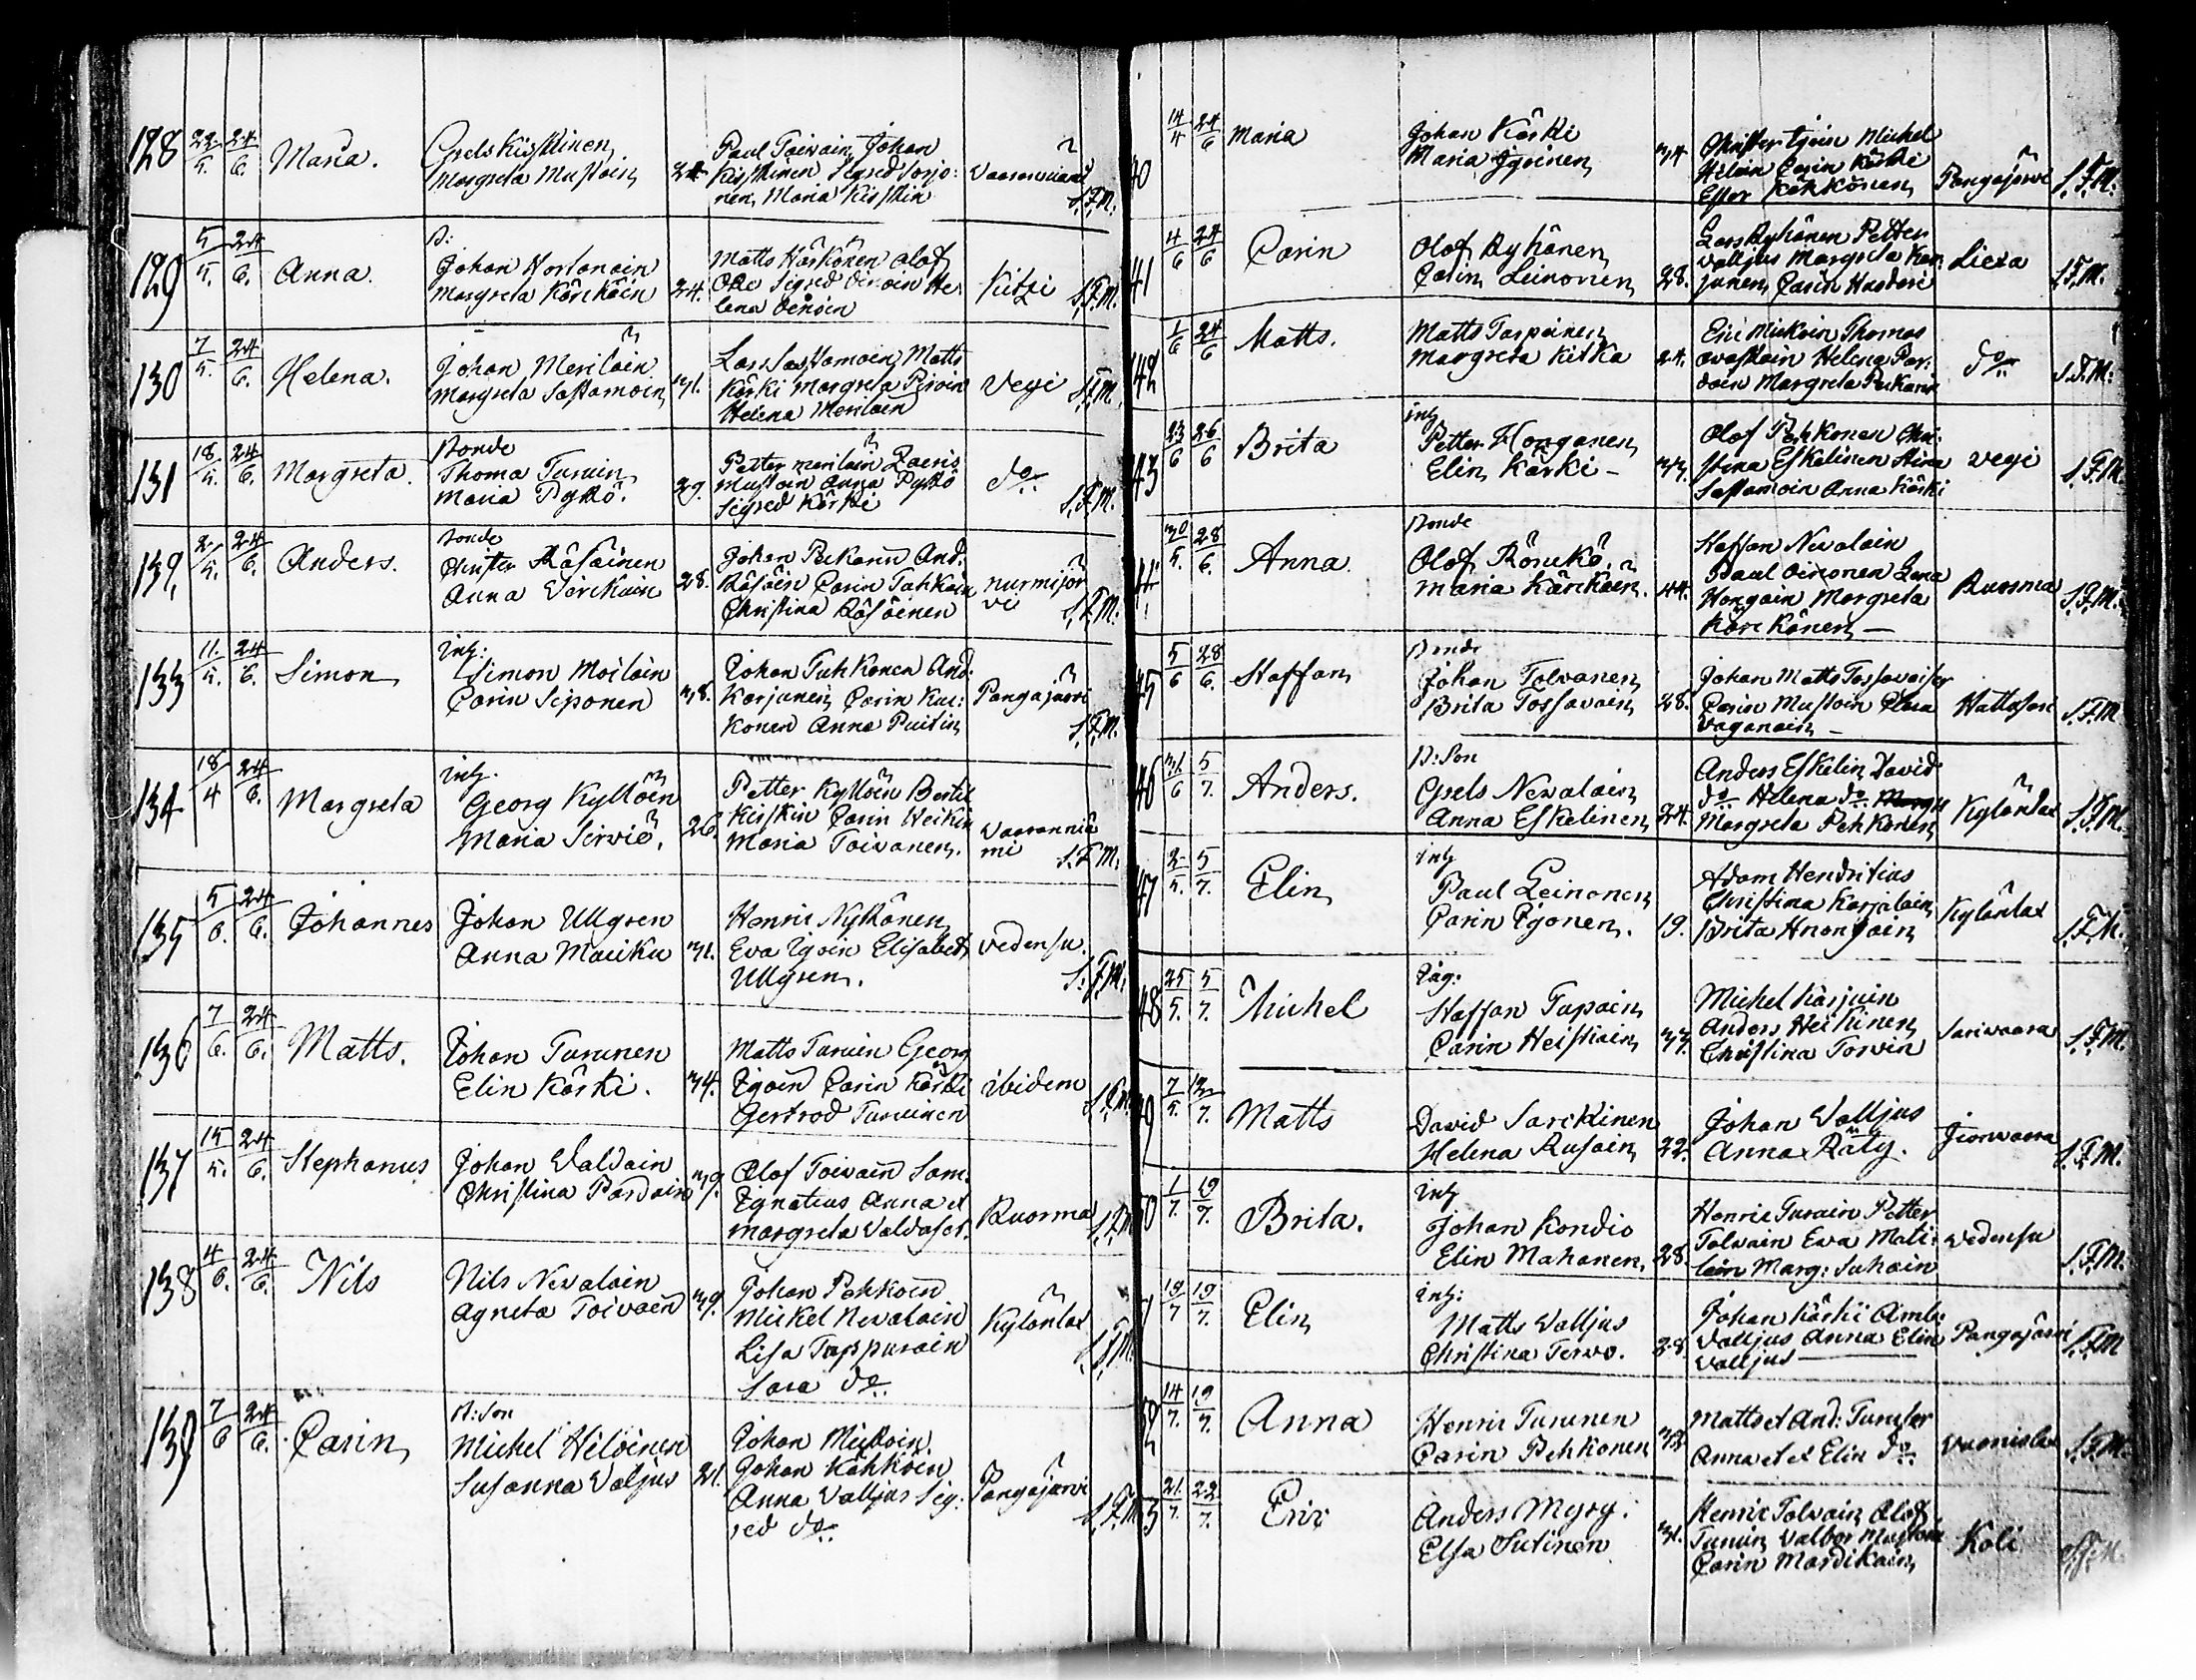 128 22/5. 24/6. Maria.
Grels Kisskinen
Margreta Mustoin 24
Paul Toivain Johan
Kisskinen Sigred Sorjo:
nen, Maria Kisskin
S.F.M:
129 5/5. 24/6. Anna.
B:
Johan Hortanain
Margreta Körcköin 24.
Matts Härkönen Olof
Oinoin He:
lena Oinoin
Kitzi S.F.M.
130 7/5. 24/6. Helena.
Johan Meriläin
Margreta Sastamoin 31.
Lars Sastamoin Matts
Kärki Margreta Piroin
Helena Meriläin
Vegi S.F.M.
131 18/5. 24/6. Margreta.
Bonde
Thoma Turuin
Maria Pykkö. 29.
Petter Meriläin
Mustoin Anna Pykkö
Sigred Kärki
do S.F.M.
132 2/5. 24/6. Anders.
Bonde
Christer Räsäinen
Anna 28.
Johan Pickarin And.
Räsäin Carin Tahkain
Christina Räsäinen
Nurmijär
vi S.F.M:
133 11./5. 24/6. Simon
Inh:
Simon Moiläin
Carin Siponen 38.
Johan Tuhkonen And:
Karjunen, Carin Kuc:
konen Anna Puitin
Pangajärvi
S.F.M.
134 18/4 24/6. Margreta
Inh.
Georg Kyllöin
Maria Sirviö. 26.
Petter Kyllöin Bertil
Kisskin Carin Heikin
Maria Toivanen.
Waaranniä
mi S.F.M:
135 5/6. 24/6. Johannes
Johan Ullgren
Anna Mauku 31.
Henric Nykänen
Eva Igoin Elisabeth
Ullgren.
Vedensu.
S.F.M.
136 7/6. 24/6. Matts.
Johan Turunen
Elin Kärki. 34.
Matts Turuin Georg
Igoin Carin Kärki
Gertrod Turuinen
ibidem S.F.M.
137 15/5. 24/6. Stephanus
Johan Valdain
Christina Pardain 39.
Olof Toivain Sam.
Ignatius Anna et
Margreta Valdaser.
Ruorma S.F.M
138 4/6. 24/6. Nils
Nils Nevalain
Agneta Toivaen 39.
Johan Pehkoin
Mickel Nevalain
Lisa Tuppurain
Sara do.
Kylänlax S.F.M.
139 7/6 24/6. Carin
B:Son
Michel Hiloinen
Susanna Valjus 21.
Johan Mickoin
Johan Kähköin
Anna Valljus Sig:
red do.
Pangajärvi
S.F.M
40 14/4 24/6 Maria
Johan Kärki
Maria Igoinen 34
Christer Igoin Michel
Hiloin Carin Kärki
Ester Kähkönen
Pangajärvi S.F.M:
41 4/6 24/6 Carin
Olof Ryhänen
Carin Leinonen 28.
Lars Ryhänen Petter
Valljus Margreta Kar:
junen, Carin
Liexa S.F.M.
142 1/6 24/6 Matts.
Matts Tarpoinen
Margreta Kitka 24.
Eric Mickoin Thomas
Ovaskain Helena Par:
doin Margreta Pickarin
do S.F.M:
43 23/6 26/6 Brita
inh
Petter Honganen
Elin Kärki - 33.
Olof Pehkonen Chri:
stina Eskelinen Stina
Sastamoin Anna Kärki
Vegi S.F.M
44 30/5. 28/6. Anna.
Bonde
Olof
Maria Kärckäen. 44.
Staffan Nevalain
Paul Oinonen Lena
Hongain Margreta
Kärckänen -
Ruorma S.F.M.
45 5/6 28/6. Staffan
Bonde
Johan Tolvanen
Brita Tossavain 28.
Johan Matts Tossavaiser
Carin Mustoin Clara
Vaganain -
Hattusari S.F.M
46 5/7. Anders.
B:Son
Grels Nevalain
Anna Eskelinen 24.
Anders Eskelin David
do Helena do
Margreta Pehkonen
Kylänlax S.F.M.
47 2/5. 5/7. Elin
inh
Paul Leinonen
Carin Igonen. 19.
Adam Hendritius
Christina Karjalain
Brita
Kylänlax S.F.M.
48 25/5. 5/7. Michel
Staffan Tapain
Carin Heiskain 33.
Michel Karjuin
Anders Heikinen
Christina Torvin
Sarivaara S.F.M.
49 7/5. 12/7. Matts
David Sarckinen
Helena Rusain 22.
Johan Valljus
Anna Räty.
S.F.M.
50 1/7. 19/7. Brita.
Inh
Johan Kondio
Elin Mahonen. 28.
Henric Turuin Petter
Tolvain Eva Mati:
lain Marg: Suhoin
Vedensu
S.F.M:
19/7 19/7. Elin
Inh:
Matts Valljus
Christina Tervo. 28.
Johan Kärki Amb:
Valljus Anna Elin
Valljus
Pangajärvi S.F.M
52 14/7. 19/7. Anna
Henric Turunen
Carin Pehkonen 32
Matts et And: Turuser
Anna et Elin do.
Vuonislax S.F.M.
53 21./7. 22/7. Eric
Anders Myry.
Elsa Sutinen 31.
Henric Tolvain Olof
Turuin Valbor
Carin Mardikain
Koli S.F.M.